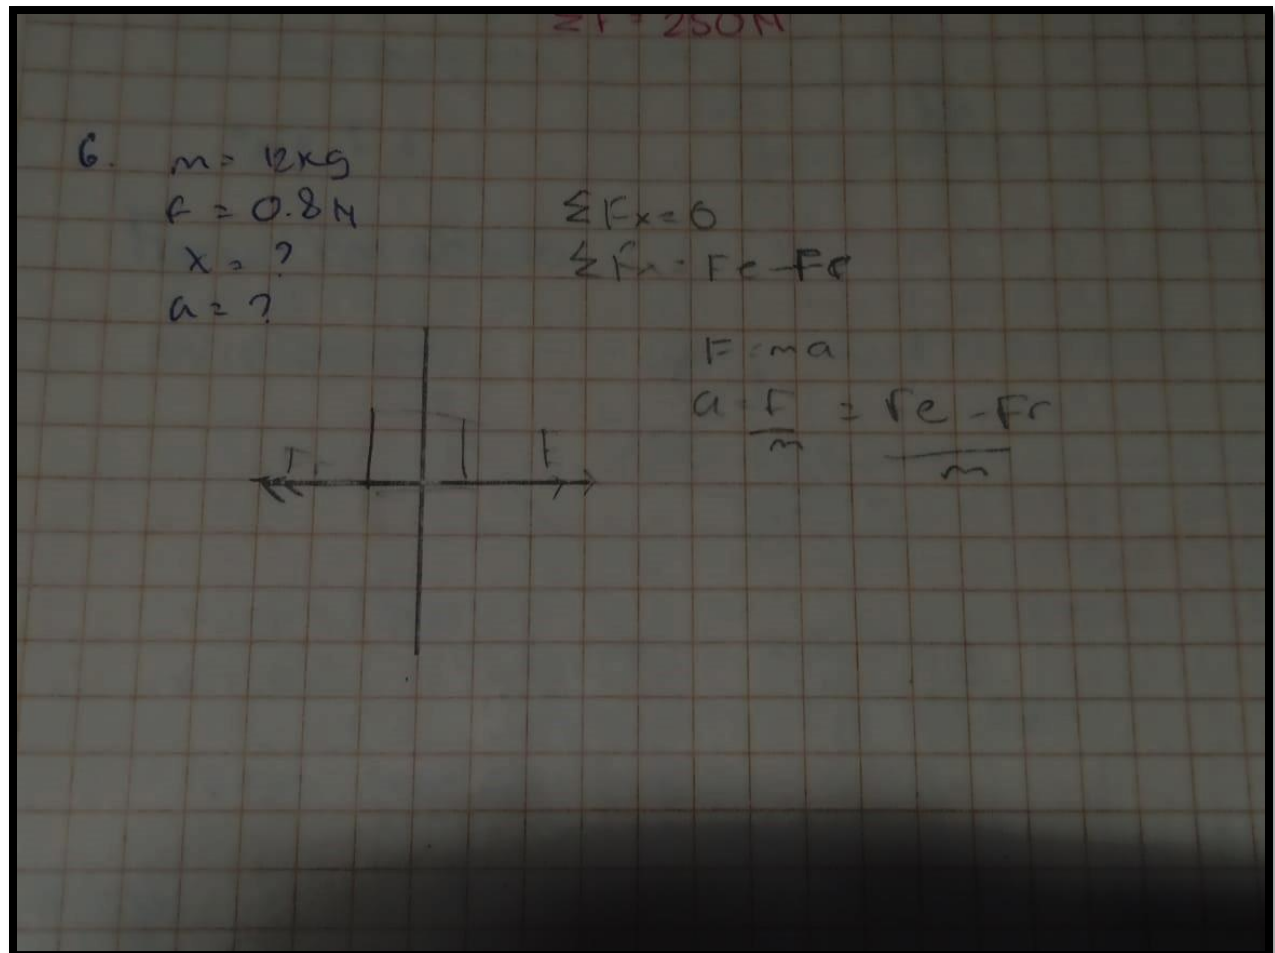 ΣF = 250N
6. m = 12kg
F = 0.8N
x = ?
a = ?
ΣFx = 0
ΣFx = Fe - Fr
F = ma
a = F/m = Fe - Fr/m
Fr
F